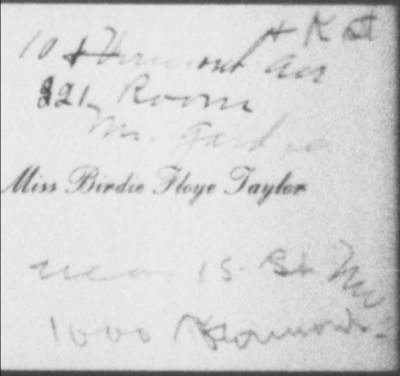 & K St
10 & Vermont av
321 Room
Mr. Gard
Miss Birdie Floye Taylor
near 15 St NW
1000 Vermont